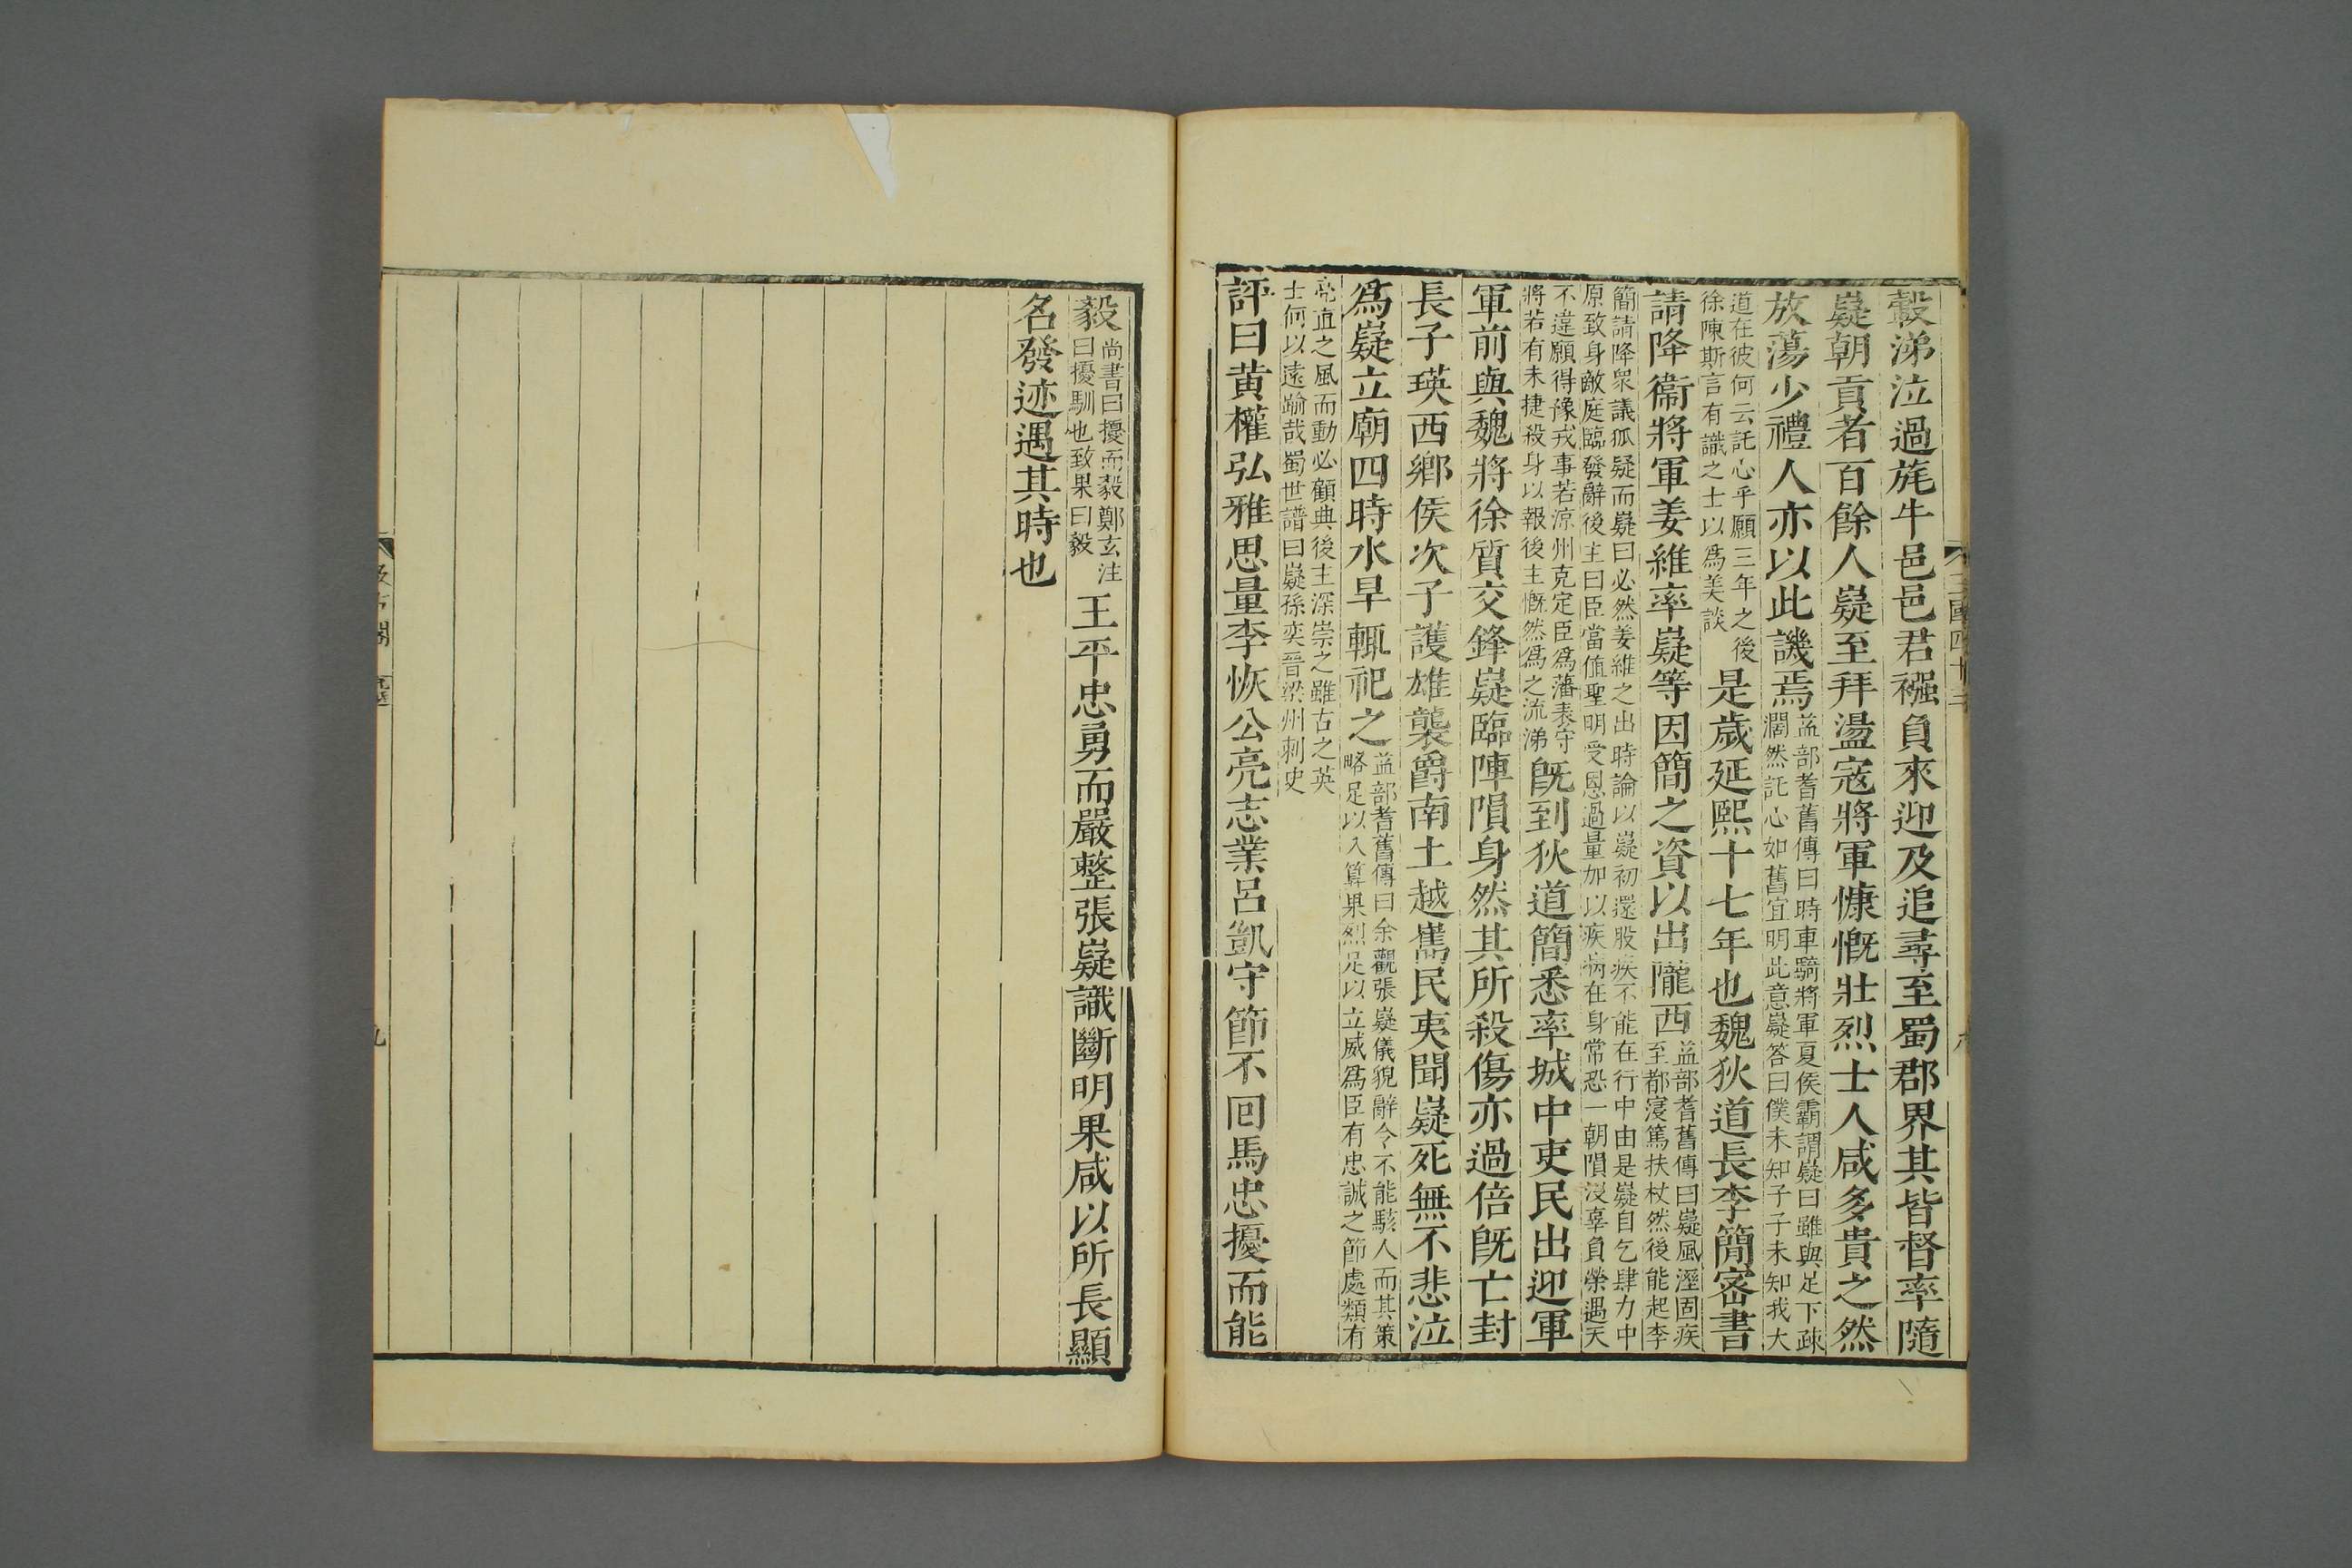 轂涕泣過旄牛邑邑君襁負來迎及追尋至蜀郡界其皆督率隨
嶷朝貢者百餘人嶷至拜盪寇將軍慷慨壯烈士人咸多貴之然
放蕩少禮人亦以此譏焉
益部耆舊傳曰時車騎將軍夏侯霸謂嶷曰雖與足下疎
濶然託心如舊宜明此意嶷答曰僕未知子子未知我大
道在彼何云託心乎願三年之後
徐陳斯言有識之士以爲美談
是歲延熙十七年也魏狄道長李簡密書
請降衞將軍姜維率嶷等因簡之資以出隴西
益部耆舊傳曰嶷風溼固疾
至都寖篤扶杖然後能起李
簡請降衆議狐疑而嶷曰必然姜維之出時論以嶷初還股疾不能在行中由是嶷自乞肆力中
原致身敵庭臨發辭後主曰臣當值聖明受恩過量加以疾病在身常恐一朝隕沒辜負榮遇天
不違願得豫戎事若涼州克定臣爲藩表守
將若有未捷殺身以報後主慨然爲之流涕
旣到狄道簡悉率城中吏民出迎軍
軍前與魏將徐質交鋒嶷臨陣隕身然其所殺傷亦過倍旣亡封
長子瑛西鄉侯次子護雄襲爵南土越嶲民夷聞嶷死無不悲泣
爲嶷立廟四時水旱輒祀之
益部耆舊傳曰余觀張嶷儀貌辭令不能駭人而其策
略足以入算果烈足以立威爲臣有忠誠之節處類有
亮直之風而動必顧典後主深崇之雖古之英
士何以遠踰哉蜀世譜曰嶷孫奕晉梁州刺史
評曰黃權弘雅思量李恢公亮志業呂凱守節不回馬忠擾而能
毅
尚書曰擾而毅鄭玄注
曰擾馴也致果曰毅
王平忠勇而嚴整張嶷識斷明果咸以所長顯
名發迹遇其時也